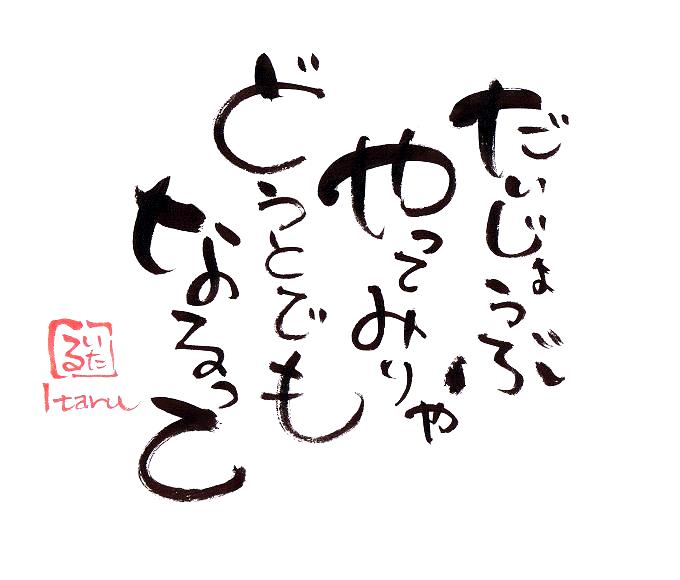 だいじょうぶ
やってみりゃ
どうとでも
なるって
いた
る
Itaru